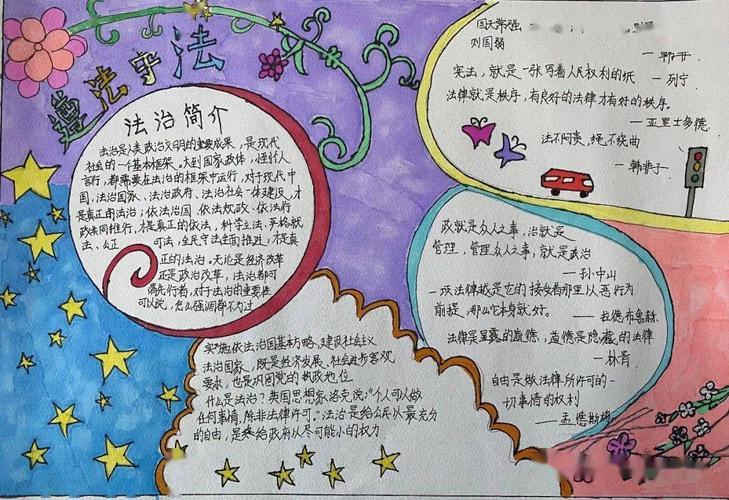 遵法守法
法治简介
法治是人类政治文明的重要成果，是现代
社会的一个基本框架。大到国家政体，小到个人
言行，都需要在法治的框架中运行，对于现代中
国，法治国家、法治政府、法治社会一体建设，才
是真正的法治；依法治国、依法执政、依法行
政共同推行，才是真正的依法，科学立法、严格执
法、公正
司法，全民守法全面推进，才是真
正的法治。无论是经济改革
还是政治改革，法治都可
先行者，对于法治的重要性
可以说，怎么强调都不为过
实施依法治国基本方略，建设社会主义
法治国家，既是经济发展、社会进步客观
要求，也是巩固党的执政地位
什么是法治？英国思想家洛克说：“个人可以做
任何事情，除非法律许可。”法治是给公民以最充分
的自由，是给政府以尽可能小的权力
国无常强
则国弱
—韩非
宪法，就是一张写着人民权利的纸
—列宁
法律就是秩序，有良好的法律才有好的秩序。
—亚里士多德
法不阿贵，绳不挠曲
—韩非子
政就是众人之事，治就是
管理，管理众人之事，就是政治
—孙中山
一项法律越是在它的接受者那里以恶行为
前提，那么它本身就好。
法律是显露的道德，道德是隐藏的法律
—林肯
自由是做法律所许可的一
切事情的权利
—孟德斯鸠